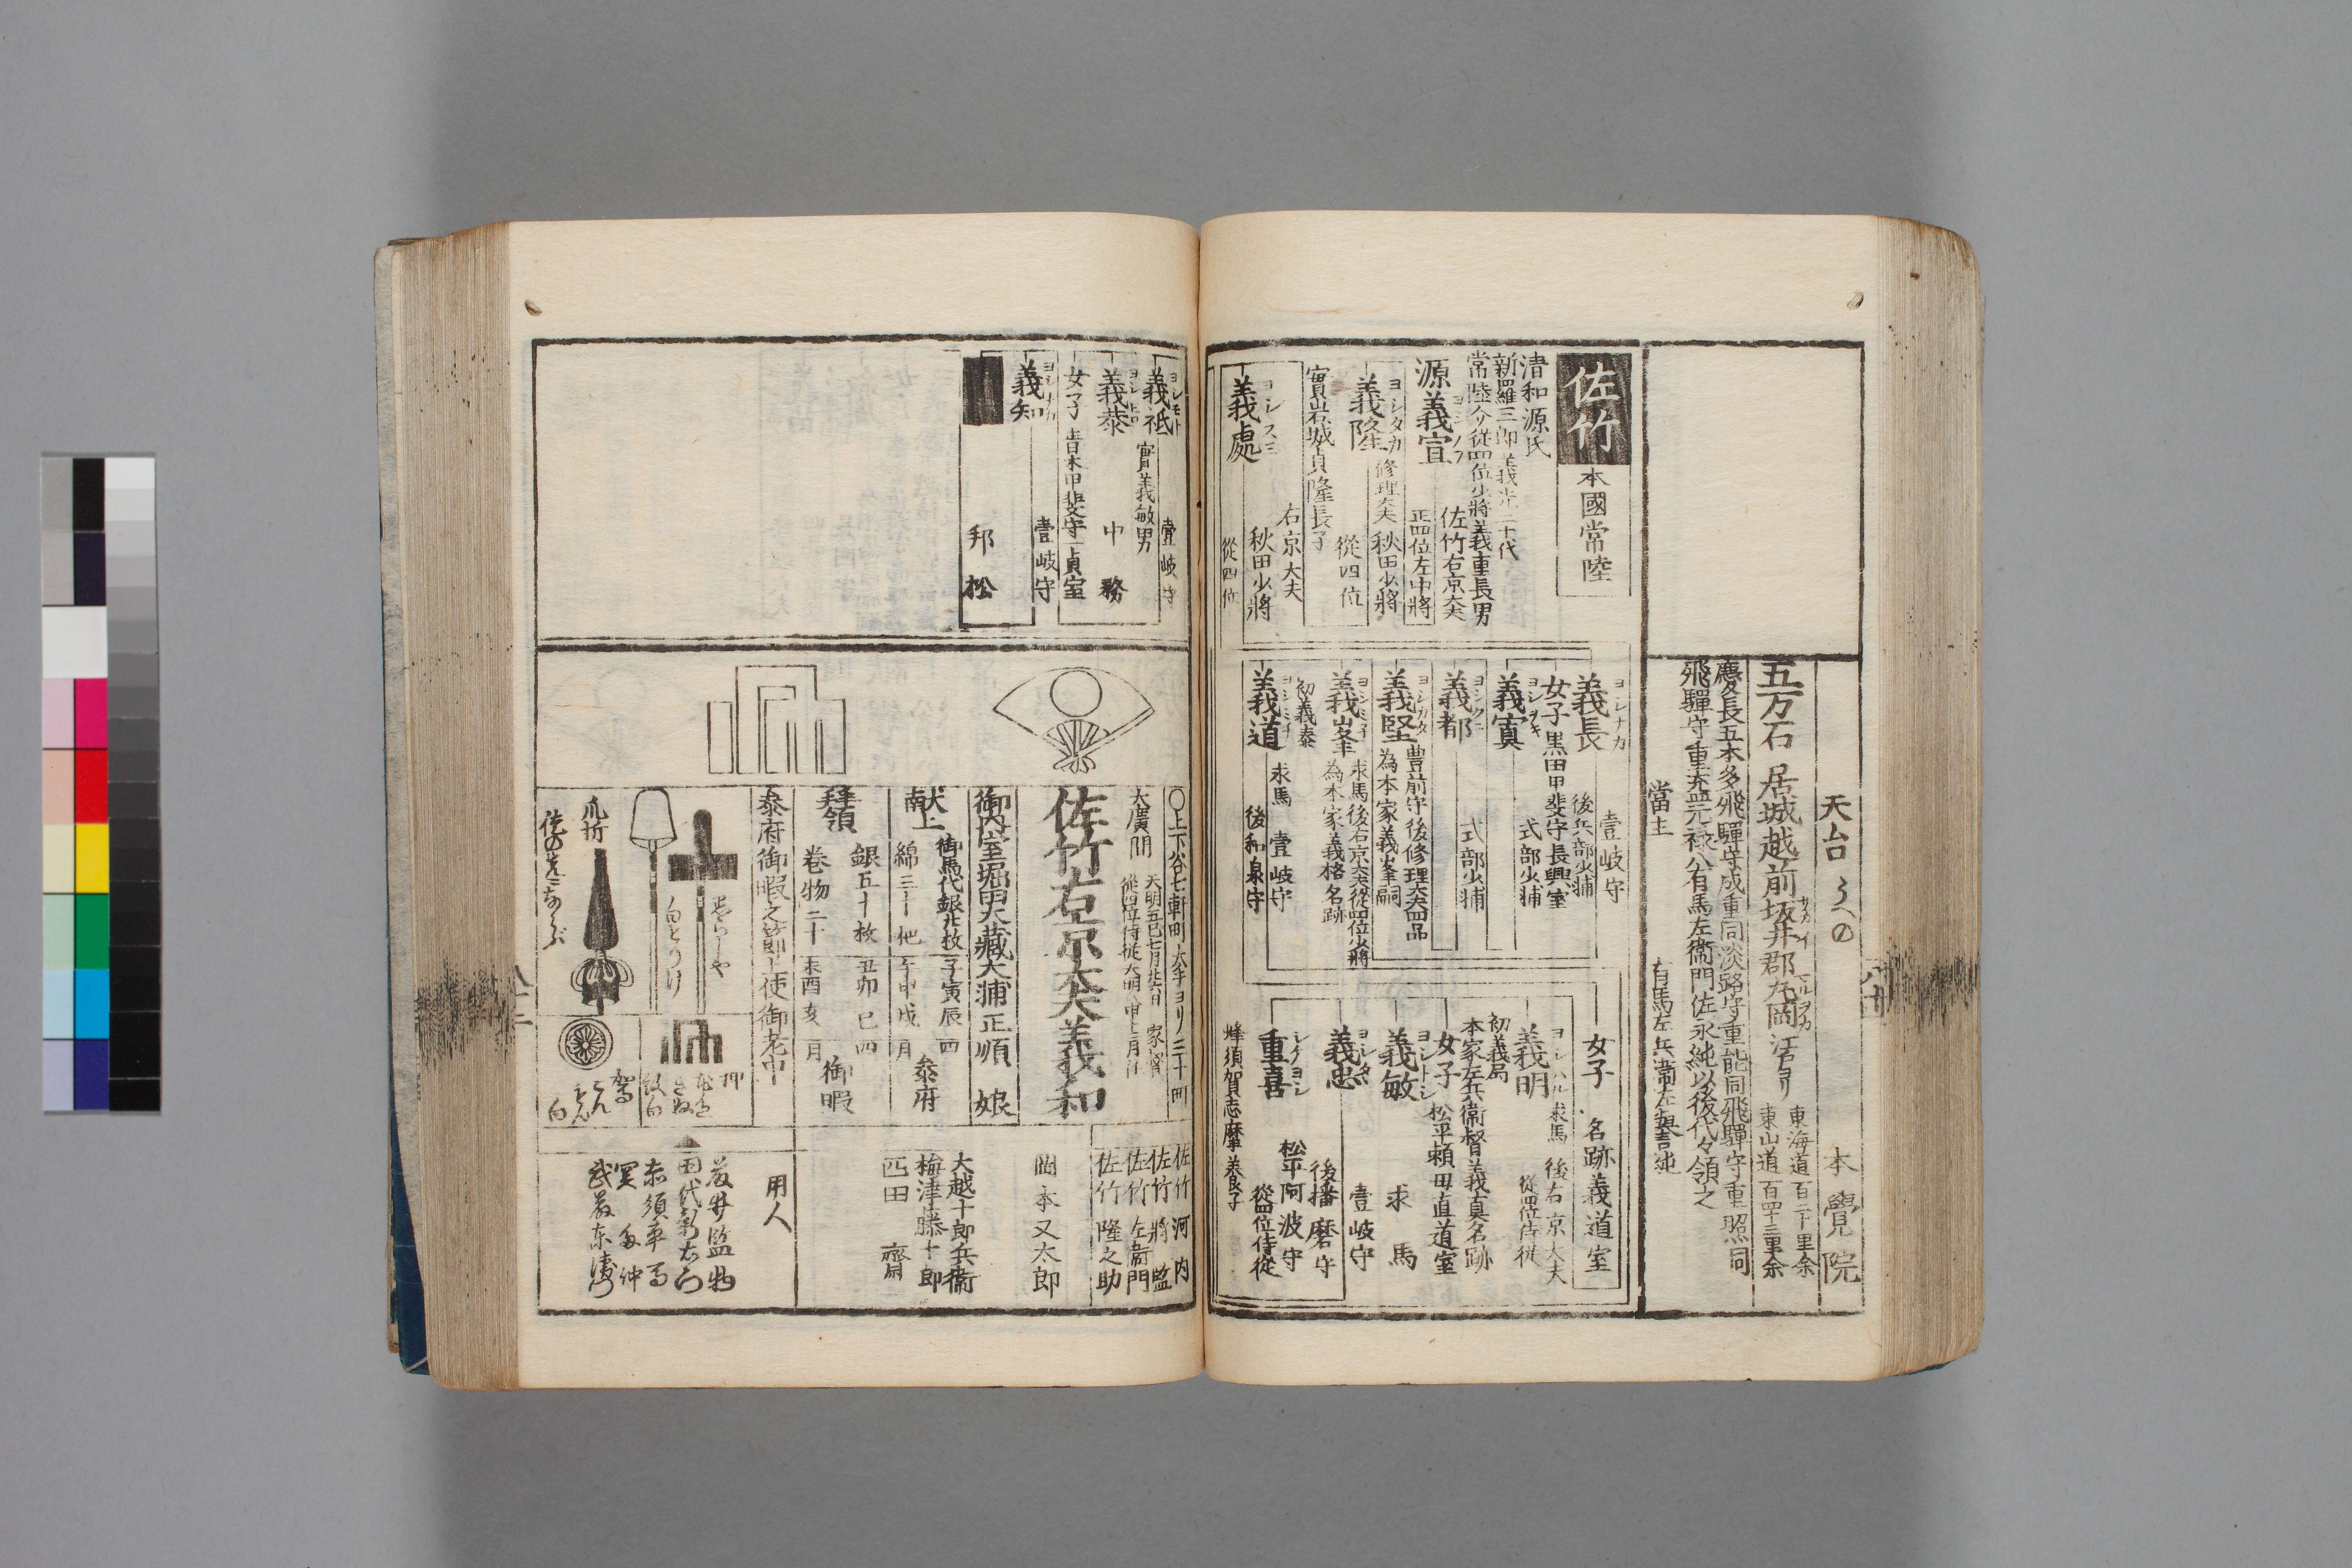 天台
本覺院
五万石
居城越前坂井郡丸岡
サカイ
マルヲカ
江戸ヨリ
東海道百二十里余
東山道百四十三里余
慶長五本多飛驒守成重同淡路守重能同飛驒守重照同
飛驒守重益元禄八有馬左衞門佐永純以後代々領之
當主
佐竹
本國常陸
清和源氏
新羅三郎義光二十代
常陸介從四位少將義重長男
源義宣
ヨシノフ
佐竹右京大夫
正四位左中將
義隆
ヨシタカ
修理大夫
秋田少將
從四位
實岩城貞隆長子
義處
ヨシスミ
右京大夫
秋田少將
從四位
義長
ヨシナカ
壹岐守
後兵部少輔
女子
黒田甲斐守長興室
義寘
ヨシヲキ
式部少輔
義都
ヨシクニ
式部少輔
義堅
ヨシカタ
豊前守後修理大夫四品
為本家義峯嗣
義峯
ヨシミネ
求馬後右京大夫從四位少將
為本家義格名跡
初義泰
義道
ヨシミチ
求馬
壹岐守
後和泉守
女子
名跡義道室
義明
ヨシハル
求馬
後右京大夫
從四位侍從
初義局
本家左兵衞督義真名跡
女子
松平頼母直道室
義敏
ヨシトシ
求馬
義忠
ヨシタタ
壹岐守
後播磨守
重喜
シケヨシ
松平阿波守
從四位侍從
蜂須賀志摩養子
義祇
ヨシモト
壹岐守
實義敏男
義恭
中務
女子
青木甲斐守一貞室
義知
壹岐守
邦松
○上下谷七軒町
大手ヨリ三十町
大廣間
天明五巳七月廿六日家督
佐竹右京大夫義和
御内室堀田大藏大輔正順娘
献上
御馬代銀廿枚
綿三十把
子寅辰
午申戌
四月
参府
拜領
銀五十枚
巻物二十
丑卯巳
未酉亥
四月
御暇
参府御暇之節上使御老中
爪折
白
押
佐竹河内
佐竹將監
佐竹左衞門
佐竹隆之助
岡本又太郎
大越十郎兵衞
梅津藤十郎
匹田齋
用人